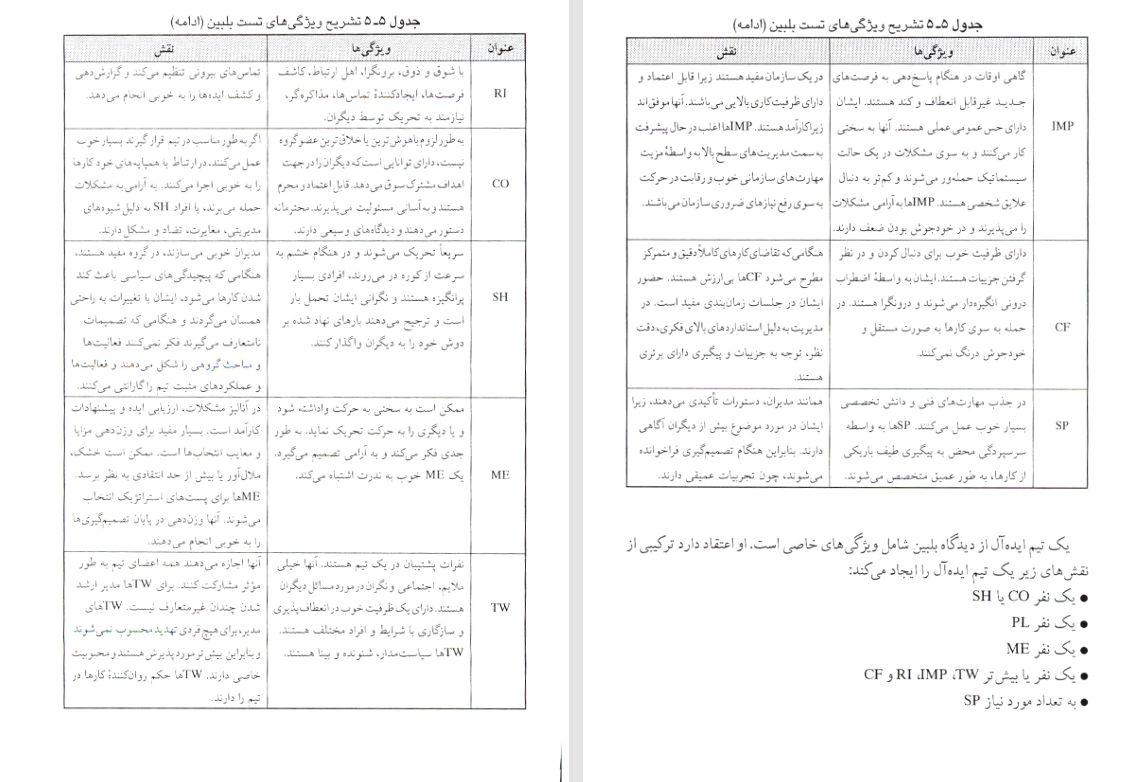 جدول ۵-۵ تشریح ویژگی‌های تست بلبین (ادامه)
عنوان
ویژگی‌ها
نقش
RI
با شوق و ذوق، برونگرا، اهل ارتباط، کاشف
فرصت‌ها، ایجادکنندهٔ تماس‌ها، مذاکره‌گر،
نیازمند به تحریک توسط دیگران.
تماس‌های بیرونی تنظیم می‌کند و گزارش‌دهی
و کشف ایده‌ها را به خوبی انجام می‌دهد.
CO
به طور لزوم باهوش‌ترین یا خلاق‌ترین عضو گروه
نیست، دارای توانایی است که دیگران را در جهت
اهداف مشترک سوق می‌دهد. قابل اعتماد و محرم
هستند و به آسانی مسئولیت می‌پذیرند. محترمانه
دستور می‌دهند و دیدگاه‌های وسیعی دارند.
اگر به طور مناسب در تیم قرار گیرند بسیار خوب
عمل می‌کنند، در ارتباط با همپایه‌های خود کارها
را به خوبی اجرا می‌کنند. به آرامی به مشکلات
حمله می‌برند، با افراد SH به دلیل شیوه‌های
مدیریتی، مغایرت، تضاد و مشکل دارند.
SH
سریعاً تحریک می‌شوند و در هنگام خشم به
سرعت از کوره در می‌روند، افرادی بسیار
پرانگیزه هستند و نگرانی ایشان تحمل بار
است و ترجیح می‌دهند بارهای نهاد شده بر
دوش خود را به دیگران واگذار کنند.
مدیران خوبی می‌سازند، در گروه مفید هستند،
هنگامی که پیچیدگی‌های سیاسی باعث کند
شدن کارها می‌شود، ایشان با تغییرات به راحتی
همسان می‌گردند و هنگامی که تصمیمات
نامتعارف می‌گیرند فکر نمی‌کنند فعالیت‌ها
و مباحث گروهی را شکل می‌دهند و فعالیت‌ها
و عملکردهای مثبت تیم را گارانتی می‌کنند.
ME
ممکن است به سختی به حرکت واداشته شود
و یا دیگری را به حرکت تحریک نماید. به طور
جدی فکر می‌کند و به آرامی تصمیم می‌گیرد.
یک ME خوب به ندرت اشتباه می‌کند.
در آنالیز مشکلات، ارزیابی ایده و پیشنهادات
کارآمد است. بسیار مفید برای وزن‌دهی مزایا
و معایب انتخاب‌ها است. ممکن است خشک،
ملال‌آور یا بیش از حد انتقادی به نظر برسد.
MEها برای پست‌های استراتژیک انتخاب
می‌شوند. آنها وزن‌دهی در پایان تصمیم‌گیری‌ها
را به خوبی انجام می‌دهند.
TW
نفرات پشتیبان در یک تیم هستند. آنها خیلی
ملایم، اجتماعی و نگران در مورد مسائل دیگران
هستند. دارای یک ظرفیت خوب در انعطاف‌پذیری
و سازگاری با شرایط و افراد مختلف هستند.
TWها سیاست‌مدار، شنونده و بینا هستند.
آنها اجازه می‌دهند همه اعضای تیم به طور
مؤثر مشارکت کنند. برای TWها مدیر ارشد
شدن چندان غیرمتعارف نیست. TWهای
مدیر، برای هیچ فردی تهدید محسوب نمی‌شوند
و بنابراین بیش‌تر مورد پذیرش هستند و محبوبیت
خاصی دارند. TWها حکم روان‌کنندهٔ کارها در
تیم را دارند.
جدول ۵-۵ تشریح ویژگی‌های تست بلبین (ادامه)
عنوان
ویژگی‌ها
نقش
IMP
گاهی اوقات در هنگام پاسخ‌دهی به فرصت‌های
جدید غیرقابل انعطاف و کند هستند. ایشان
دارای حس عمومی عملی هستند. آنها به سختی
کار می‌کنند و به سوی مشکلات در یک حالت
سیستماتیک حمله‌ور می‌شوند و کم‌تر به دنبال
علایق شخصی هستند. IMPها به آرامی مشکلات
را می‌پذیرند و در خودجوش بودن ضعف دارند.
در یک سازمان مفید هستند زیرا قابل اعتماد و
دارای ظرفیت کاری بالایی می‌باشند. آنها موفق‌اند
زیرا کارآمد هستند. IMPها اغلب در حال پیشرفت
به سمت مدیریت‌های سطح بالا به واسطهٔ مزیت
مهارت‌های سازمانی خوب و رقابت در حرکت
به سوی رفع نیازهای ضروری سازمان می‌باشند.
CF
دارای ظرفیت خوب برای دنبال کردن و در نظر
گرفتن جزییات هستند. ایشان به واسطهٔ اضطراب
درونی انگیزه‌دار می‌شوند و درونگرا هستند. در
حمله به سوی کارها به صورت مستقل و
خودجوش درنگ نمی‌کنند.
هنگامی که تقاضای کارهای کاملاً دقیق و متمرکز
مطرح می‌شود CFها بی‌ارزش هستند. حضور
ایشان در جلسات زمان‌بندی مفید است. در
مدیریت به دلیل استانداردهای بالای فکری، دقت
نظر، توجه به جزییات و پیگیری دارای برتری
هستند.
SP
در جذب مهارت‌های فنی و دانش تخصصی
بسیار خوب عمل می‌کنند. SPها به واسطه
سرسپردگی محض به پیگیری طیف باریکی
از کارها، به طور عمیق متخصص می‌شوند.
همانند مدیران، دستورات تأکیدی می‌دهند، زیرا
ایشان در مورد موضوع بیش از دیگران آگاهی
دارند. بنابراین هنگام تصمیم‌گیری فراخوانده
می‌شوند، چون تجربیات عمیقی دارند.
یک تیم ایده‌آل از دیدگاه بلبین شامل ویژگی‌های خاصی است. او اعتقاد دارد ترکیبی از
نقش‌های زیر یک تیم ایده‌آل را ایجاد می‌کند:
● یک نفر CO یا SH
● یک نفر PL
● یک نفر ME
● یک نفر یا بیش‌تر RI ،IMP ،TW و CF
● به تعداد مورد نیاز SP